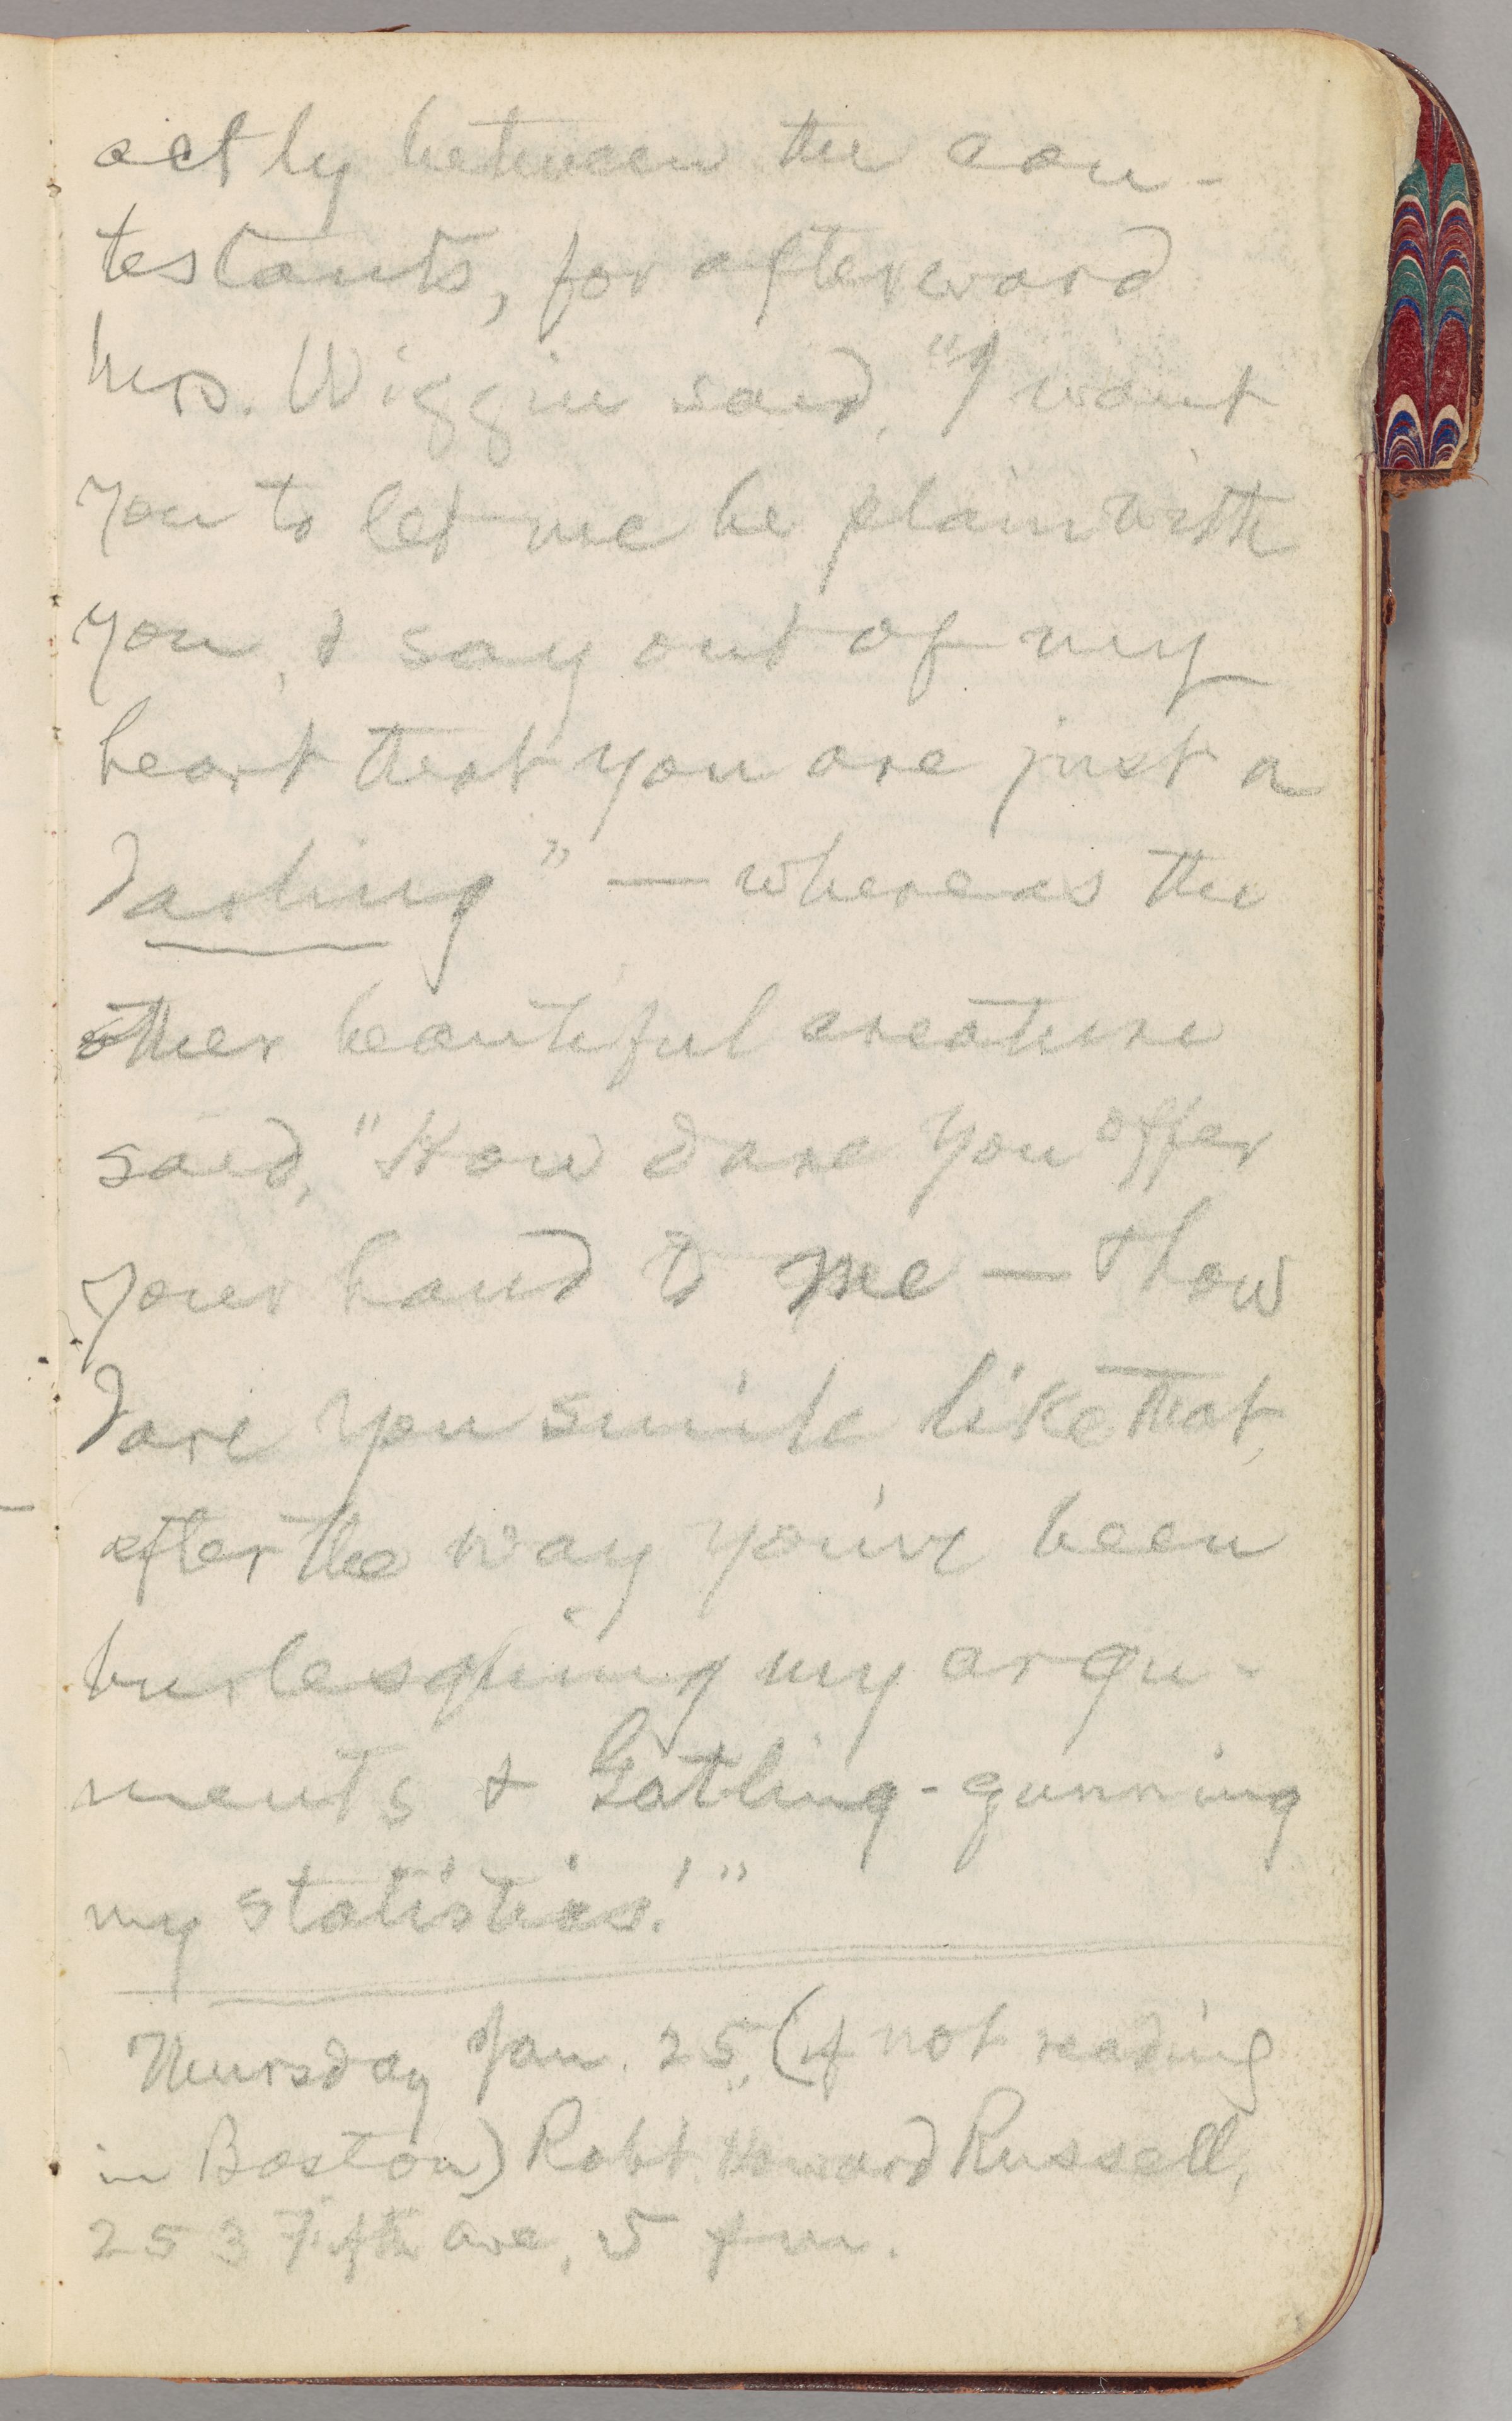 actly between the con-
testants, for afterward
Mrs. Wiggin said, "I want
you to let me be plain with
you, & say out of my
heart that you are just a
darling" — whereas the
other beautiful creature
said, "How dare you offer
your hand to me — & how
dare you smile like that,
after the way you've been
burlesquing my argu-
ments & Gatling-gunning
my statistics!"
Thursday Jan. 25, (if not reading
in Boston) Robt. Howard Russell,
253 Fifth ave, 5 pm.